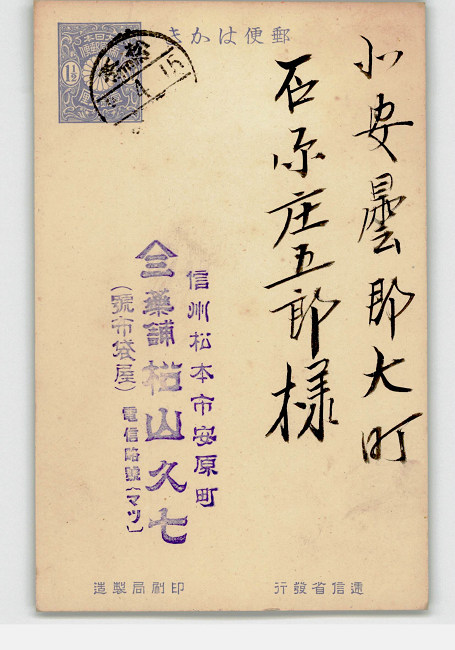 郵便はかき
北安曇郡大町
石原庄五郎様
信州松本市安原町
三 藥舗 横山久七
(號布袋屋) 電信略號(マツ)
1½
4 15
遞信省發行
印刷局製造